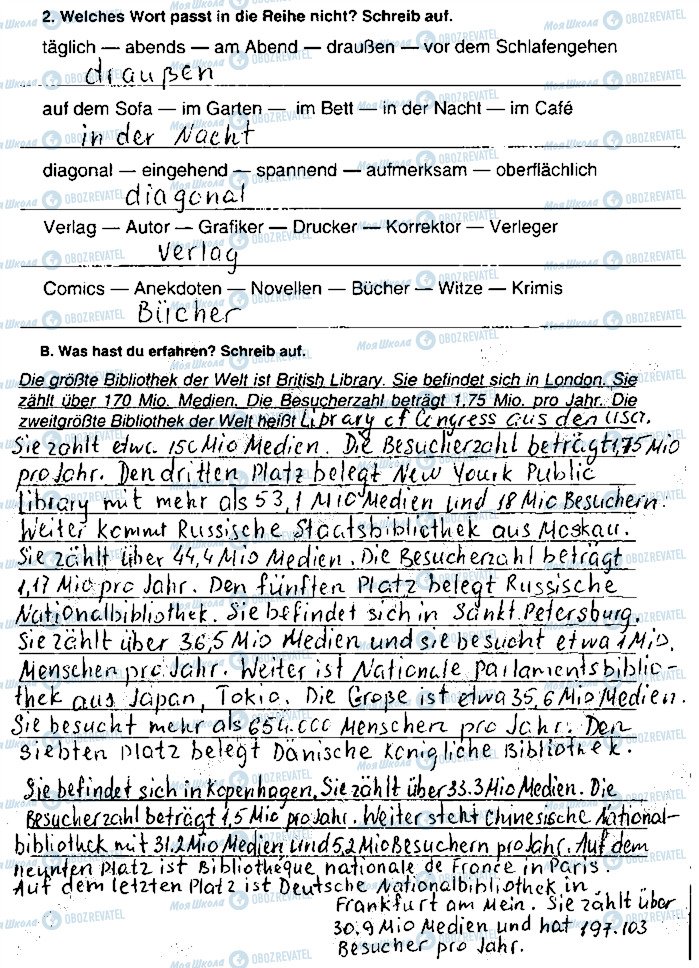 2. Welches Wort passt in die Reihe nicht? Schreib auf.
täglich — abends — am Abend — draußen — vor dem Schlafengehen
draußen
auf dem Sofa — im Garten — im Bett — in der Nacht — im Café
in der Nacht
diagonal — eingehend — spannend — aufmerksam — oberflächlich
diagonal
Verlag — Autor — Grafiker — Drucker — Korrektor — Verleger
Verlag
Comics — Anekdoten — Novellen — Bücher — Witze — Krimis
Bücher
B. Was hast du erfahren? Schreib auf.
Die größte Bibliothek der Welt ist British Library. Sie befindet sich in London. Sie
zählt über 170 Mio. Medien. Die Besucherzahl beträgt 1,75 Mio. pro Jahr. Die
zweitgrößte Bibliothek der Welt heißt Library of Congress aus den USA.
Sie zählt etwa 150 Mio Medien. Die Besucherzahl beträgt 1,75 Mio
pro Jahr. Den dritten Platz belegt New Yourk Public
Library mit mehr als 53,1 Mio Medien und 18 Mio Besuchern.
Weiter kommt Russische Staatsbibliothek aus Moskau.
Sie zählt über 44,4 Mio Medien. Die Besucherzahl beträgt
1,17 Mio pro Jahr. Den fünften Platz belegt Russische
Nationalbibliothek. Sie befindet sich in Sankt Petersburg.
Sie zählt über 36,5 Mio Medien und sie besucht etwa 1 Mio.
Menschen pro Jahr. Weiter ist Nationale Parlamentsbiblio-
thek aus Japan, Tokio. Die Große ist etwa 35,6 Mio Medien.
Sie besucht mehr als 654.000 Menschen pro Jahr. Den
siebten Platz belegt Dänische Königliche Bibliothek.
Sie befindet sich in Kopenhagen. Sie zählt über 33.3 Mio Medien. Die
Besucherzahl beträgt 1,5 Mio pro Jahr. Weiter steht Chinesische National-
bibliothek mit 31.2 Mio Medien und 5,2 Mio Besuchern pro Jahr. Auf dem
neunten Platz ist Bibliothéque nationale de France in Paris.
Auf dem letzten Platz ist Deutsche Nationalbibliothek in
Frankfurt am Mein. Sie zählt über
30.9 Mio Medien und hat 197.103
Besucher pro Jahr.